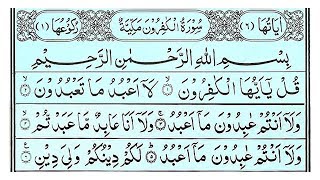 اٰیَاتُهَا (٦) سُوْرَةُ الْكٰفِرُوْنَ مَكِّيَّةٌ رُكُوْعُهَا (١)
بِسْمِ اللّٰهِ الرَّحْمٰنِ الرَّحِيْمِ
قُلْ يٰۤاَيُّهَا الْكٰفِرُوْنَ ۙ ١ لَاۤ اَعْبُدُ مَا تَعْبُدُوْنَ ۙ ٢
وَلَاۤ اَنْتُمْ عٰبِدُوْنَ مَاۤ اَعْبُدُ ۚ ٣ وَلَاۤ اَنَا عَابِدٌ مَّا عَبَدْتُّمْ ۙ ٤
وَلَاۤ اَنْتُمْ عٰبِدُوْنَ مَاۤ اَعْبُدُ ؕ ٥ لَكُمْ دِيْنُكُمْ وَلِيَ دِيْنِ ٦